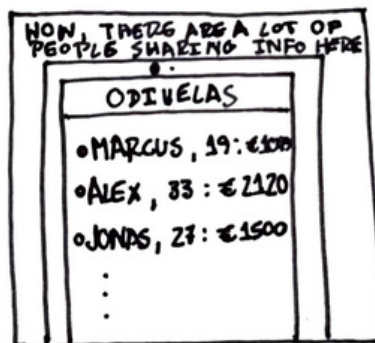 NOW, THERE ARE A LOT OF
PEOPLE SHARING INFO HERE
ODIVELAS
•MARCUS, 19:
•ALEX, 33: €2120
•JONAS, 27: €1500